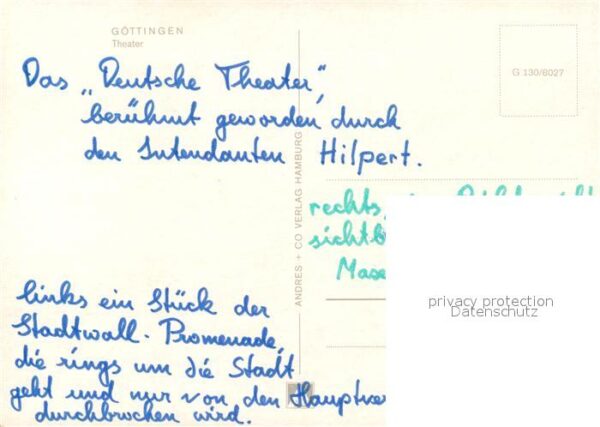 GÖTTINGEN
Theater
G 130/8027
Das „Deutsche Theater",
berühmt geworden durch
den Intendanten Hilpert.
ANDRES + CO VERLAG HAMBURG
rechts,
sichtb
Mase
privacy protection
Datenschutz
links ein Stück der
Stadtwall-Promenade,
die rings um die Stadt
geht und nur von den Hauptver
durchbrochen wird.